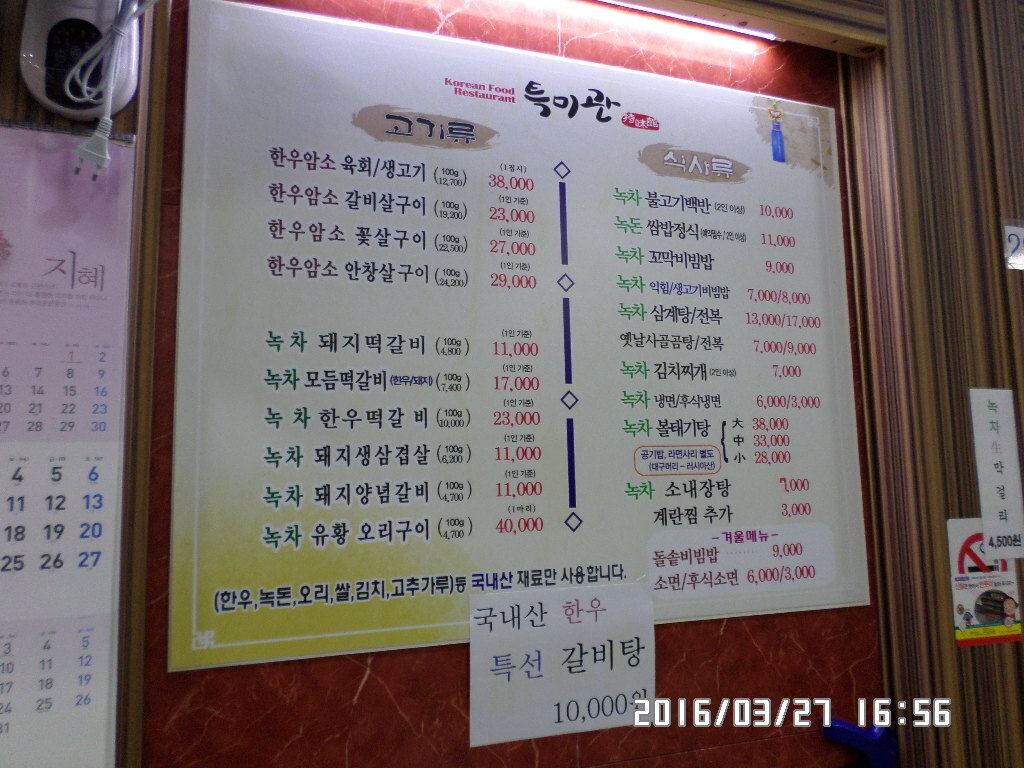 Korean Food
Restaurant
특미관
特味館
고기류
한우암소 육회/생고기 (100g 12,700) (1접시) 38,000
한우암소 갈비살구이 (100g 19,200) (1인 기준) 23,000
한우암소 꽃살구이 (100g 22,500) (1인 기준) 27,000
한우암소 안창살구이 (100g 24,200) (1인 기준) 29,000
녹차 돼지떡갈비 (100g 4,800) (1인 기준) 11,000
녹차 모듬떡갈비 (한우/돼지) (100g 7,400) (1인 기준) 17,000
녹차 한우떡갈비 (100g 10,000) (1인 기준) 23,000
녹차 돼지생삼겹살 (100g 6,200) (1인 기준) 11,000
녹차 돼지양념갈비 (100g 4,700) (1인 기준) 11,000
녹차 유황 오리구이 (100g 4,700) (1마리) 40,000
식사류
녹차 불고기백반 (2인 이상) 10,000
녹돈 쌈밥정식 (예약필수/2인 이상) 11,000
녹차 꼬막비빔밥 9,000
녹차 익힘/생고기비빔밥 7,000/8,000
녹차 삼계탕/전복 13,000/17,000
옛날사골곰탕/전복 7,000/9,000
녹차 김치찌개 (2인 이상) 7,000
녹차 냉면/후식냉면 6,000/3,000
녹차 볼태기탕 大 38,000
中 33,000
小 28,000
공기밥, 라면사리 별도
(대구머리 - 러시아산)
녹차 소내장탕 7,000
계란찜 추가 3,000
-겨울메뉴-
돌솥비빔밥 9,000
소면/후식소면 6,000/3,000
(한우,녹돈,오리,쌀,김치,고추가루)등 국내산 재료만 사용합니다.
국내산 한우
특선 갈비탕
10,000원
녹차生막걸리
4,500원
지혜
1 2
6 7 8 9
13 14 15 16
20 21 22 23
27 28 29 30
4 5 6
11 12 13
18 19 20
25 26 27
3 4 5
10 11 12
17 18 19
24 25 26
31
2016/03/27 16:56